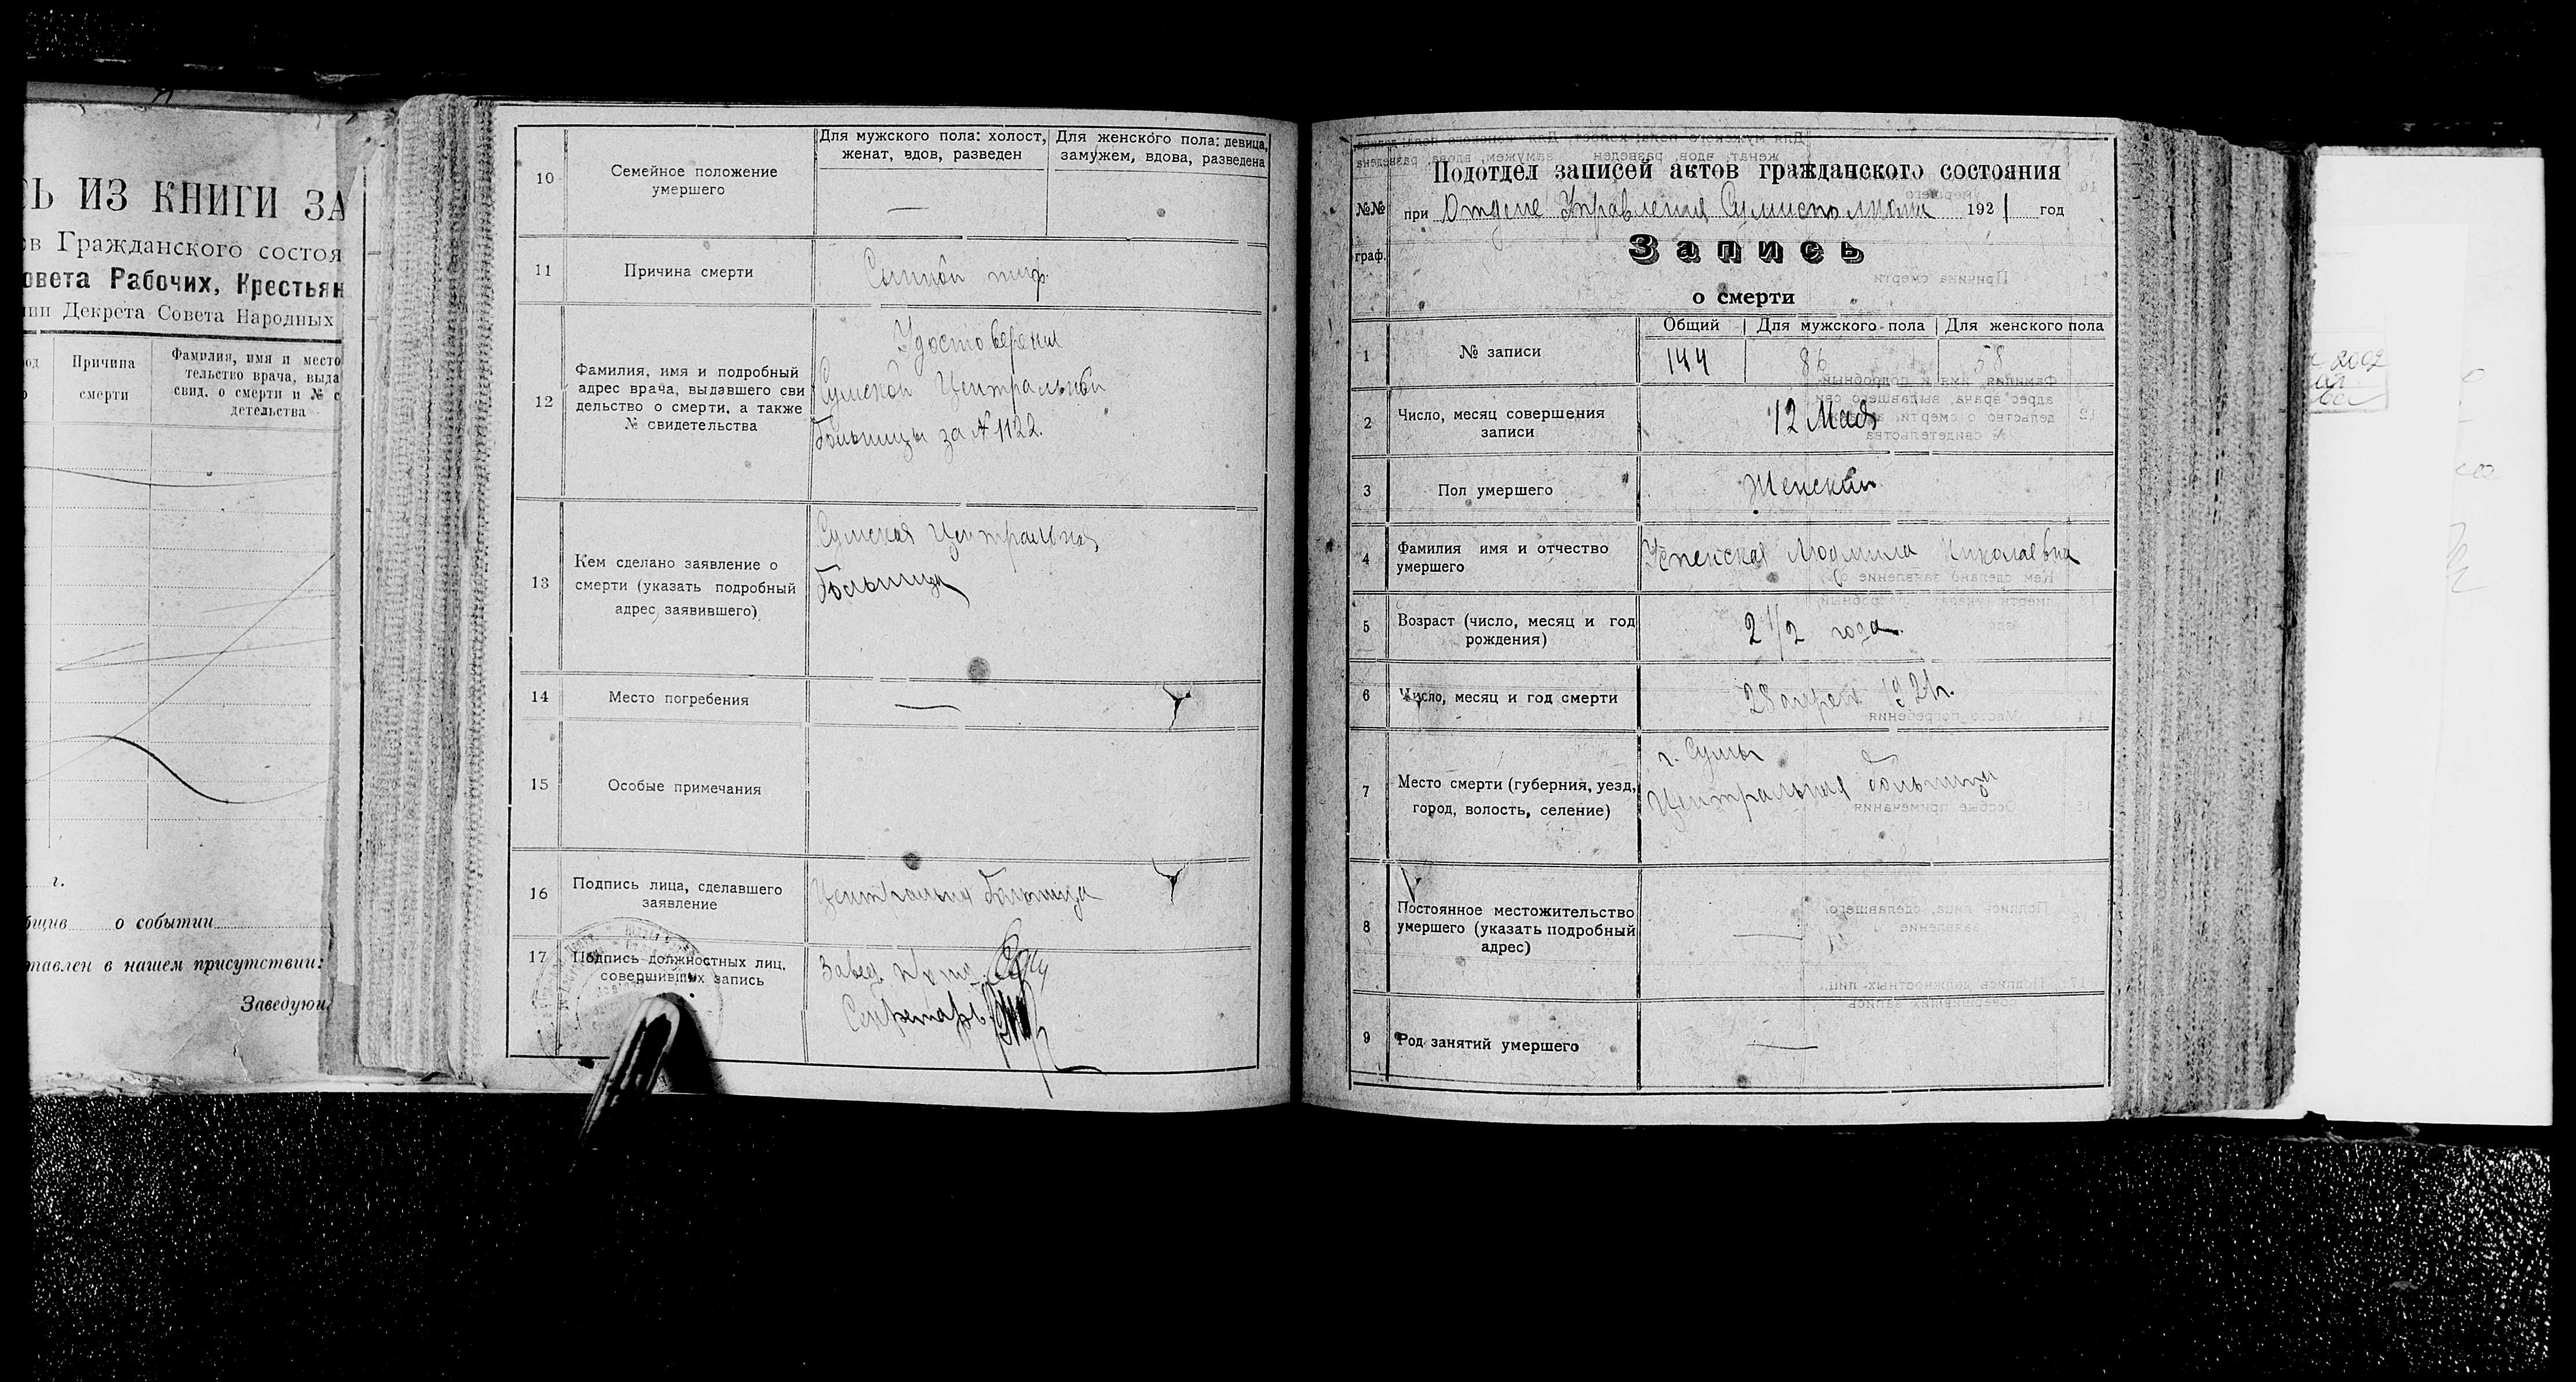 Ь ИЗ КНИГИ ЗА
ов Гражданского состоя
овета Рабочих, Крестьян
нии Декрета Совета Народных
Причина
смерти
Фамилия, имя и место
тельство врача, выда
свид. о смерти и № с
детельства
г.
о событии
тавлен в нашем присутствии:
Заведую
10
Семейное положение
умершего
Для мужского пола: холост,
женат, вдов, разведен
Для женского пола: девица,
замужем, вдова, разведена
—
11
Причина смерти
Сыпной тиф.
12
Фамилия, имя и подробный
адрес врача, выдавшего сви
дельство о смерти, а также
№ свидетельства
Удостоверения
Сумской Центральной
больницы за № 1122.
13
Кем сделано заявление о
смерти (указать подробный
адрес заявившего)
Сумская Центральная
больница
14
Место погребения
—
15
Особые примечания
16
Подпись лица, сделавшего
заявление
Центральная больница
17
Подпись должностных лиц,
совершивших запись
Завед.
Секретарь
№№
граф.
Подотдел записей актов гражданского состояния
при Отделе Управления Сумисполкома 1921 год
Запись
о смерти
1
№ записи
Общий
Для мужского пола
Для женского пола
144
86
58
2
Число, месяц совершения
записи
12 Мая
3
Пол умершего
Женский
4
Фамилия имя и отчество
умершего
Успенская Людмила Николаевна
5
Возраст (число, месяц и год
рождения)
2 1/2 года.
6
Число, месяц и год смерти
28 апреля 1921г.
7
Место смерти (губерния, уезд,
город, волость, селение)
г. Сумы
Центральная больница
8
Постоянное местожительство
умершего (указать подробный
адрес)
—
9
Род занятий умершего
—
2002